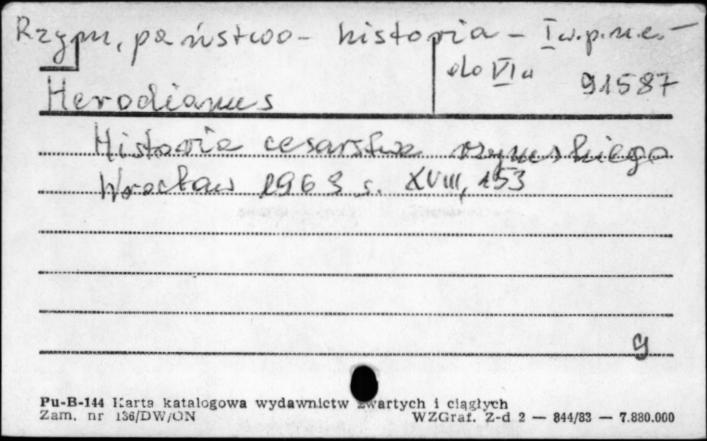 Rzym, państwo - historia - I w.p.n.e. -
do VI w
91587
Herodianus
Historia cesarstwa rzymskiego
Wrocław 1963 s. XVIII, 153
g
Pu-B-144 Karta katalogowa wydawnictw zwartych i ciągłych
Zam. nr 136/DW/ON WZGraf. Z-d 2 — 844/83 — 7.880.000